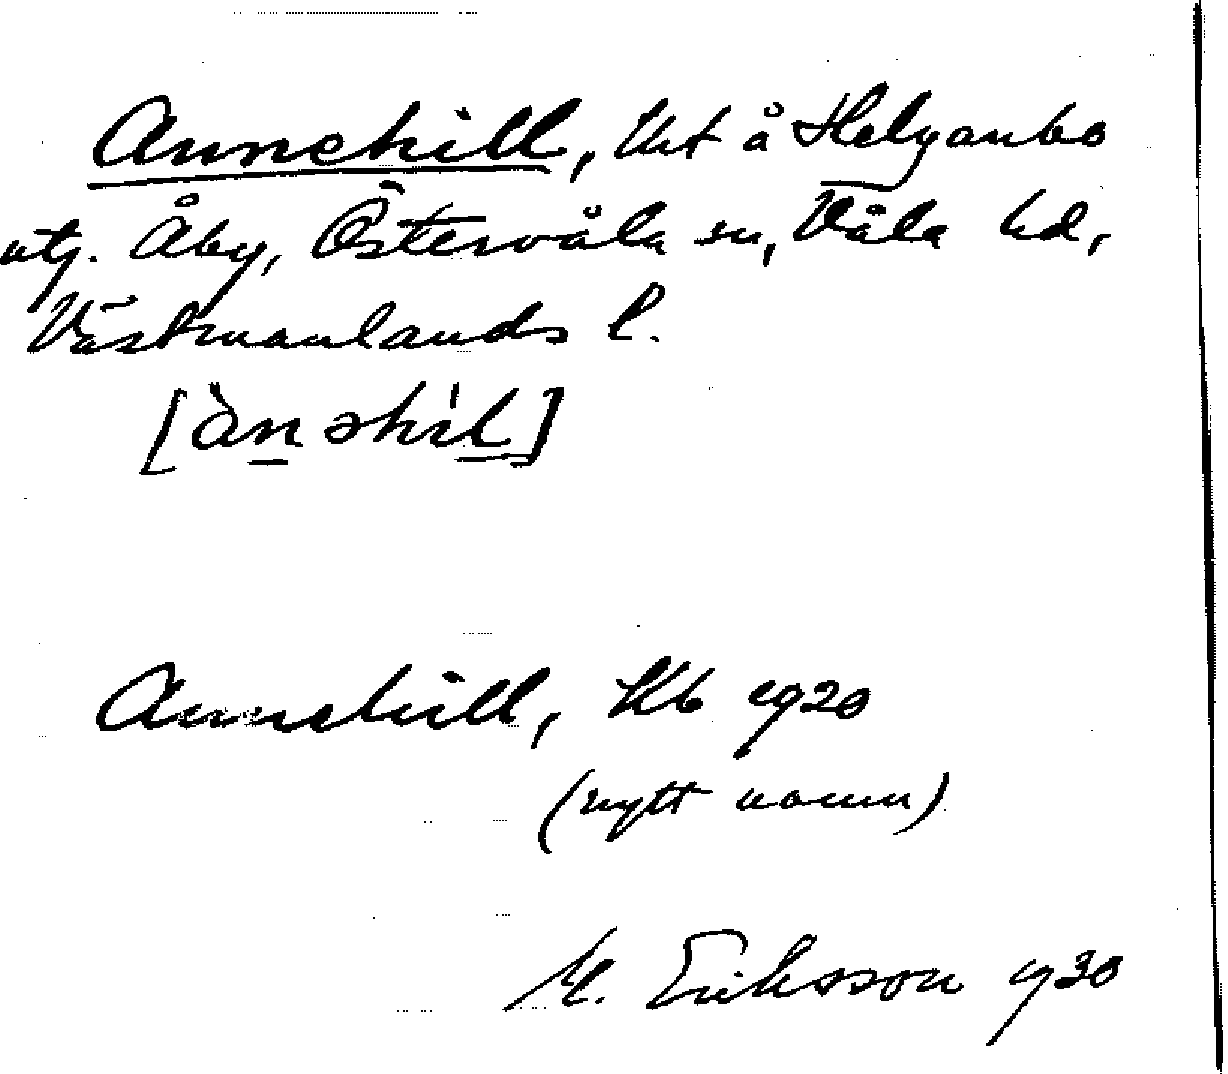 Annehill, lht å Helganbo
utj. Åby, Östervåla sn, Våla hd,
Västmanlands l.
[ànəhìl]
Annehill, Kb 1920
(nytt namn)
M. Eriksson 1930